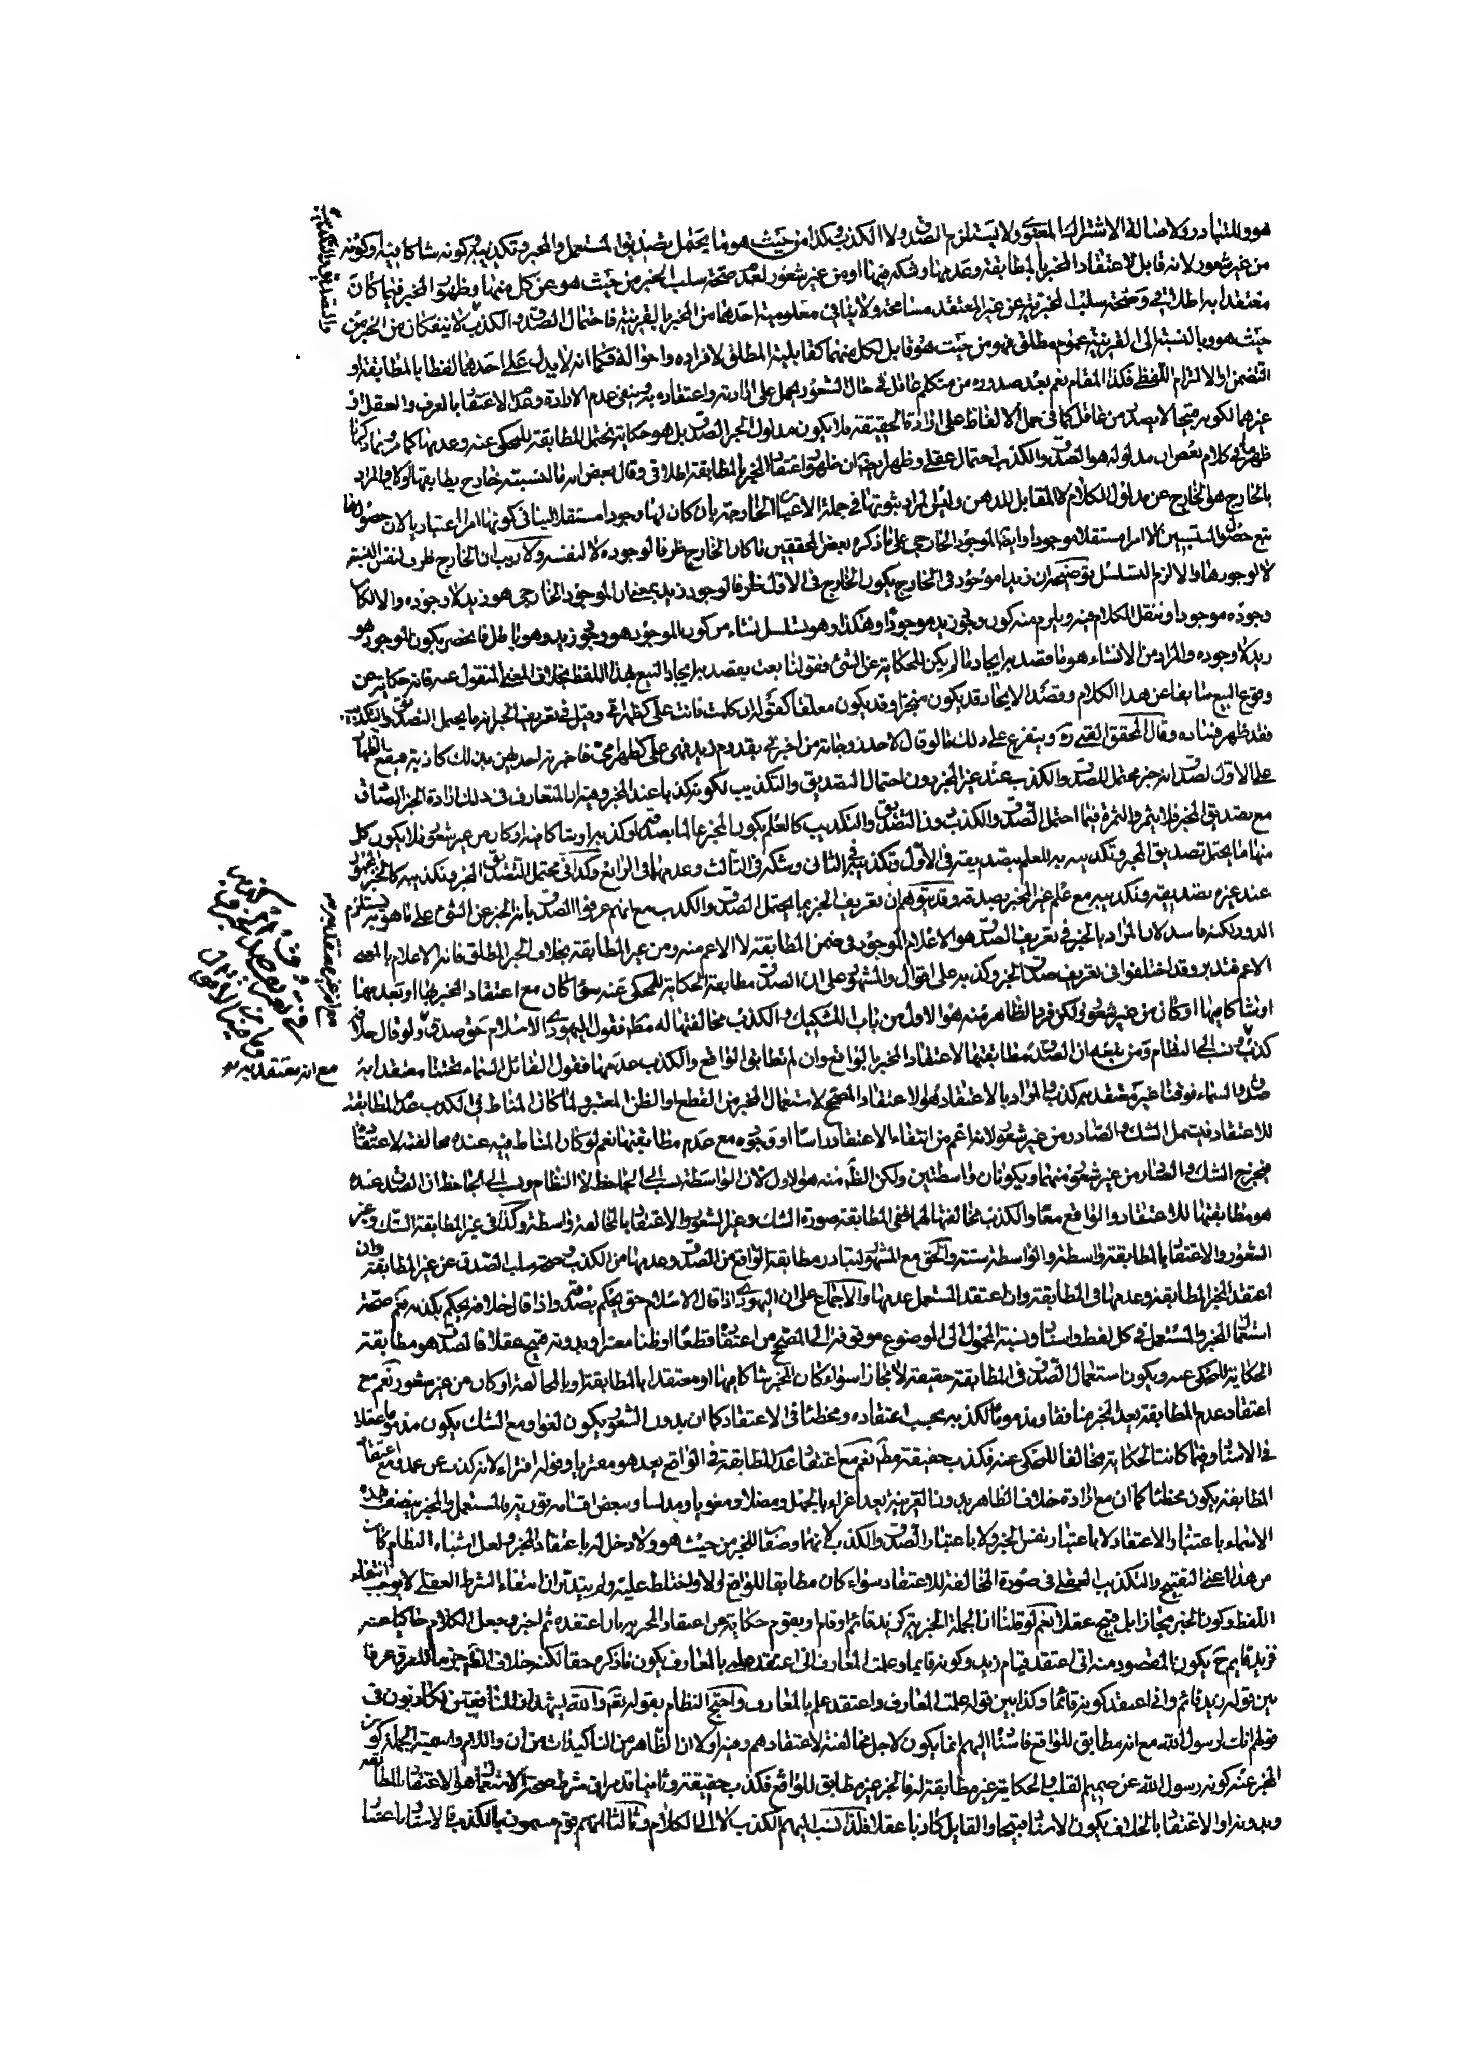 هو وللتبادر ولاصالة الاشتراك المعنوي ولا يستلزم الصدق ولا الكذب كذا من حيث هو ما يحتمل تصديق المستعمل والمخبر وتكذيبه كونه شاكا فيه او كونه
من غير شعور لانه قابل لاعتقاد المخبر بالمطابقة وعدمها وشكه فيها او من غير شعور لعدم صحة سلب الخبر من حيث هو عن كل منها وظهور المخبر فيما كان
معتقدا به اطلاقي وصحة سلب المخبرية عن غير المعتقد مسامحة ولا ينافي معلومية احدهما من الخبر بالقرينة فاحتمال الصدق والكذب لا ينفكان من الخبر من
حيث هو وبالنسبة الى القرينة عموم مطلق فهو من حيث هو قابل لكل منهما كقابلية المطلق لافراده واحواله فكما انه لا يدل على احدهما لفظا بالمطابقة او
التضمن او الالتزام اللفظي فكذا المقام نعم بعد صدوره من متكلم عاقل في حال الشعور يحمل على ارادته واعتقاده به وينفى عدم الارادة وعدم الاعتقاد بالعرف والعقل او
غيرهما لكونه قبيحا لا يصدر من عاقل كما في حمل الالفاظ على ارادة الحقيقة فلا يكون مدلول الخبر الصدق بل هو حكاية تحتمل المطابقة للمحكي عنه وعدمها كما
ظهر ما في كلام بعض ان مدلوله هو الصدق والكذب احتمال عقلي وظهر ايضا ان ظهور اعتقاد المخبر بالمطابقة اطلاقي وقال بعض انه ما لنسبته خارج يطابقها او لا والمراد
بالخارج هو الخارج عن مدلول الكلام لا المقابل للذهن وليس المراد ثبوتها في جملة الاعيان الخارجية بان كان لها وجودا مستقلا لينافي كونها امرا اعتباريا لان حصولها
تبع حصول المنتسبين لا امرا مستقلا موجودا وايضا الموجود الخارجي على ما ذكره بعض المحققين ما كان الخارج ظرفا لوجوده لا لنفسه ولا ريب ان الخارج ظرف لنفس النسبة
لا لوجودها والا لزم التسلسل توضيحه ان زيدا موجود في الخارج يكون الخارج في الاول ظرفا لوجود زيد بمعنى ان الموجود الخارجي هو زيد لا وجوده والا لكان
وجوده موجودا وننقل الكلام فيه ويلزم منه كون وجود زيد موجودا وهكذا وهو تسلسل نشاء من كون الموجود هو وجود زيد وهو باطل فانحصر بكون الموجود هو
زيد لا وجوده والمراد من الانشاء هو ما قصد به ايجاد ما لم يكن للحكاية عن الشئ فقولنا بعت يقصد به ايجاد البيع بهذا اللفظ بخلاف المعنى المنقول عنه فانه حكاية عن
وقوع البيع سابقا عن هذا الكلام وقصد الايجاد قد يكون منجزا وقد يكون معلقا كقوله ان كلمت فانت علي كظهر امي وقيل في تعريف الخبر انه ما يحتمل التصديق والتكذيب
فقد ظهر فساده وقال المحقق القمي ره ويتفرع على ذلك ما لو قال لاحد زوجاته من اخبرني بقدوم زيد فهي علي كظهر امي فاخبرته احديهن بذلك كاذبة فيقع الظهار
على الاول لصدق انه خبر محتمل للصدق والكذب عند غير المخبر دون احتمال التصديق والتكذيب لكونه كذبا عند المخبر وفيه ان المتعارف في ذلك ارادة الخبر الصادق
مع تصديق المخبر فلا يثمر والثمرة فيما احتمل الصدق والكذب دون التصديق والتكذيب كالعلم بكون المخبر عالما بصدقه او كذبه او شاكا فيه او كان من غير شعور فلا يكون كل
منها ما يحتمل تصديق المخبر وتكذيبه به للعلم بتصديقه في الاول وتكذيبه في الثاني وشكه في الثالث وعدمها في الرابع وكذا في محتمل التصديق الخبر وتكذيبه كالخبر المجهول
عند غيره تصديقه وتكذيبه مع علم غير المخبر بصدقه وقد يتوهم ان تعريف الخبر بما يحتمل الصدق والكذب مع انهم عرفوا الصدق بانه الخبر عن الشئ على ما هو به يستلزم
الدور لكنه فاسد لان المراد بالخبر في تعريف الصدق هو الاعلام الموجود في ضمن المطابقة لا الاعم منه ومن غير المطابقة بخلاف الخبر المطلق فانه الاعلام بالمعنى
الاعم فتدبر وقد اختلفوا في تعريف صدق الخبر وكذبه على اقوال والمشهور على ان الصدق مطابقة الحكاية للمحكي عنه سواء كان مع اعتقاد المخبر بها او بعدمها
او شاكا فيها او كان من غير شعور لكن فرد الظاهر منه هو الاول من باب التشكيك والكذب مخالفتها له مطلقا فقول اليهودي الاسلام حق صدق ولو قال خلافه
كذب ونسب الى النظام ومن تبعه ان الصدق مطابقتها لاعتقاد المخبر بالواقع وان لم تطابق الواقع والكذب عدمها فقول القائل السماء تحتنا معتقدا به
صدق والسماء فوقنا غير معتقد به كذب والمراد بالاعتقاد هو الاعتقاد المصحح لاستعمال المخبر من القطع او الظن المعتبر ولما كان المناط في الكذب عدم المطابقة
للاعتقاد فيشمل الشك والصادر من غير شعور لانه اعم من انتفاء الاعتقاد راسا او وجوده مع عدم مطابقتها نعم لو كان المناط فيه عنده مخالفته لاعتقاد
فيخرج الشك والصادر من غير شعور منهما ويكونان واسطتين ولكن الظاهر منه هو الاول لان الواسطة نسب الى الجاحظ لا النظام ونسب الى الجاحظ ان الصدق عنده
هو مطابقتها للاعتقاد والواقع معا والكذب مخالفتها لهما ففي المطابقة صورة الشك وغير الشعور والاعتقاد بالمخالفة واسطة وكذا في غير المطابقة الشك وغير
الشعور والاعتقاد بالمطابقة واسطة والواسطة ستة والحق مع المشهور لتبادر مطابقة الواقع من الصدق وعدمها من الكذب وصحة سلب الصدق عن غير المطابقة وان
اعتقد المخبر المطابقة وعدمها في المطابقة وان اعتقد المستعمل عدمها والاجماع على ان اليهودي اذا قال الاسلام حق يحكم بصدقه واذا قال خلافه يحكم بكذبه نعم صحة
استعمال المخبر والمستعمل في كل لفظ واسناد ونسبة المحمول الى الموضوع موقوفة الى المصحح من اعتقاد قطعا او ظنا معتبرا وبدونه قبيح عقلا فالصدق هو مطابقة
الحكاية للمحكي عنه ويكون استعمال الصدق في المطابقة حقيقة لا مجازا سواء كان المخبر شاكا فيها او معتقدا بالمطابقة او بالمخالفة او كان من غير شعور نعم مع
اعتقاد عدم المطابقة يعد المخبر منافقا ومذموما لكذبه بحسب اعتقاده ومخطئا في الاعتقاد كما ان بدون الشعور يكون لغوا ومع الشك يكون مذموما عقلا
في الاسناد وفيما كانت الحكاية مخالفا للمحكي عنه فكذب حقيقة مطلقا نعم مع اعتقاد عدم المطابقة في الواقع يعد هو مفتريا وقوله افتراء لانه كذب عن عمد ومع اعتقاد
المطابقة يكون مخطئا كما ان مع ارادة خلاف الظاهر بدون القرينة يعد اغراء بالجهل ومضلا ومغويا ومدلسا وبعض اقسامه تورية فالمستعمل والمخبر يتصف بهذه
الاسماء باعتبار الاعتقاد لا باعتبار نفس الخبر ولا باعتبار الصدق والكذب لانهما وصفان للخبر من حيث هو ولا دخل له باعتقاد المخبر ولعل اشتباه النظام كان
من هذا اعني التقبيح والتكذيب العقلي في صورة المخالفة للاعتقاد سواء كان مطابقا للواقع او لا واختلط عليه ولم يتدبر ان انتفاء الشرط العقلي لا يوجب انتفاء
اللفظ وكون الخبر مجازا بل قبيح عقلا نعم لو قلنا ان الجملة الخبرية كزيد قائم او قام او يقوم حكاية عن اعتقاد المخبر بان اعتقده ثم اخبر وجعل الكلام حاكيا عنه
فزيد قايم ح يكون المقصود منه اني اعتقد قيام زيد وكونه قايما وعلمت المعارف اني اعتقد علمه بالمعارف يكون ما ذكره حقا لكنه خلاف التحقيق جزما للفرق عرفا
بين قوله زيد قائم واني اعتقد كونه قائما وكذا بين قوله علمت المعارف واعتقد علم بالمعارف واحتج النظام بقوله تعالى والله يشهد ان المنافقين لكاذبون في
قولهم انك لرسول الله مع انه مطابق للواقع فاسناد اليهم انما يكون لاجل مخالفة لاعتقادهم وفيه اولا ان الظاهر من التاكيدات من ان واللام واسمية الجملة كون
المخبر عنه كونه رسول الله عن صميم القلب الحكاية غير مطابقة له فالخبر غير مطابق للواقع فكذب حقيقة وثانيا قد مر ان شرط صحة الاستعمال هو الاعتقاد بالمطابقة
وبدونه او الاعتقاد بالخلاف يكون الاسناد قبيحا والقايل كاذبا عقلا فلذا نسب اليهم الكذب لا الى الكلام وثالثا انهم قوم يسمون بالكذب فالاسناد باعتبار
مع انه معتقد به